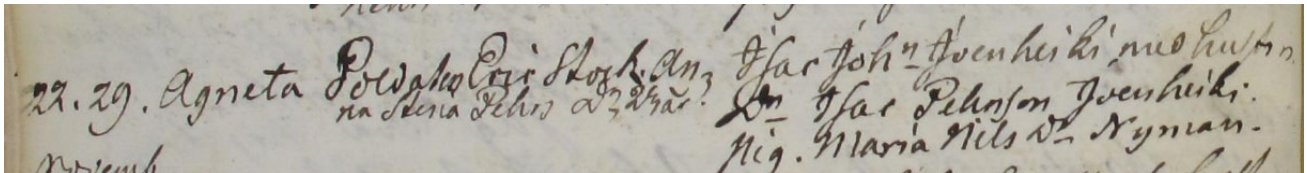 22. 29. Agneta Soldaten Eric Stork. An-
na Stena Pehrs Dr 27 år.
Isac John Ivenheiki med hustr.
Dn Isac Pehrson Ivenheiki.
Pig. Maria Nils Dr Nyman.
Novemb